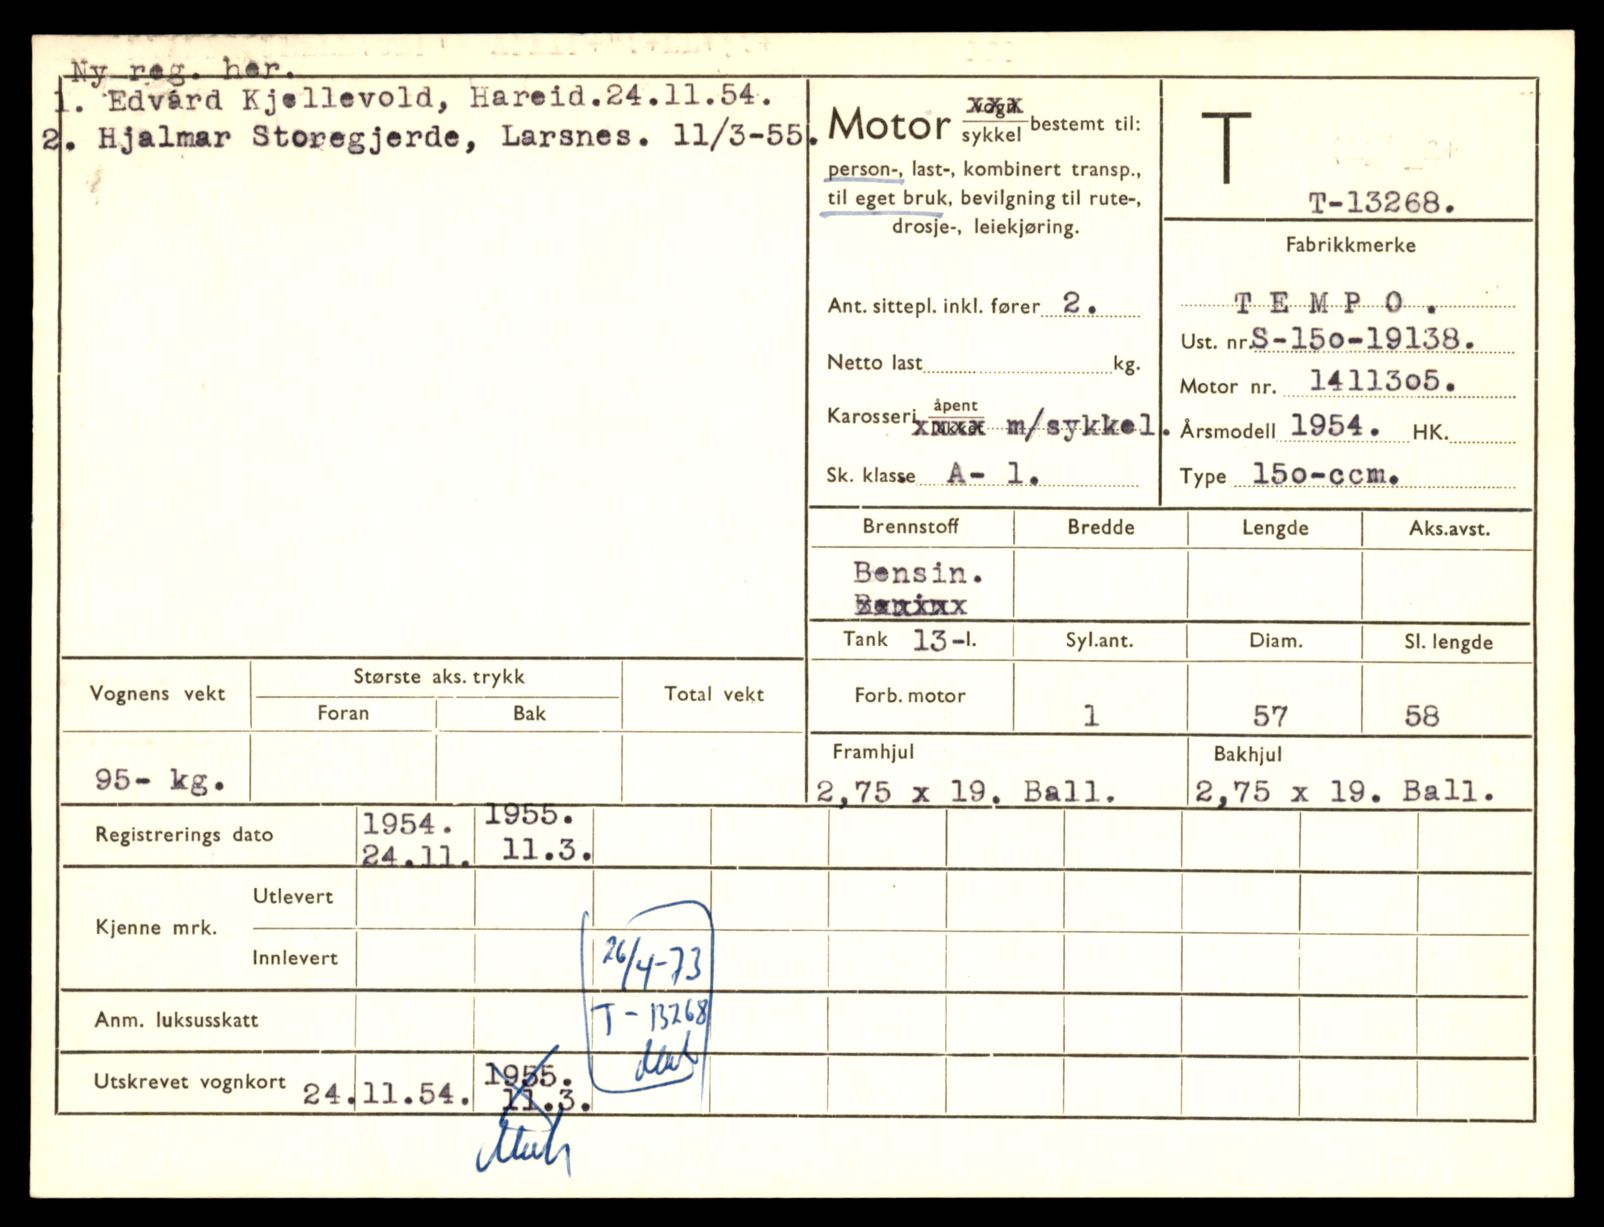 Ny reg. her.
1. Edvard Kjellevold, Hareid.24.11.54.
2. Hjalmar Storegjerde, Larsnes. 11/3-55.
Motor vogn sykkel bestemt til:
person-, last-, kombinert transp.,
til eget bruk, bevilgning til rute-,
drosje-, leiekjøring.
Ant. sittepl. inkl. fører 2.
Netto last kg.
Karosseri åpent lukket m/sykkel.
Sk. klasse A- 1.
T
T-13268.
Fabrikkmerke
T E M P O .
Ust. nr. S-15o-19138.
Motor nr. 14113o5.
Årsmodell 1954. HK.
Type 15o-ccm.
Brennstoff Bredde Lengde Aks.avst.
Bensin.
Tank 13-l. Syl.ant. Diam. Sl. lengde
Forb. motor 1 57 58
Framhjul Bakhjul
2,75 x 19. Ball. 2,75 x 19. Ball.
Vognens vekt Største aks. trykk Total vekt
Foran Bak
95- kg.
Registrerings dato 1954. 1955.
24.11. 11.3.
Kjenne mrk. Utlevert
Innlevert
26/4-73
T-13268
Anm. luksusskatt
Utskrevet vognkort 24.11.54. 1955.
11.3.